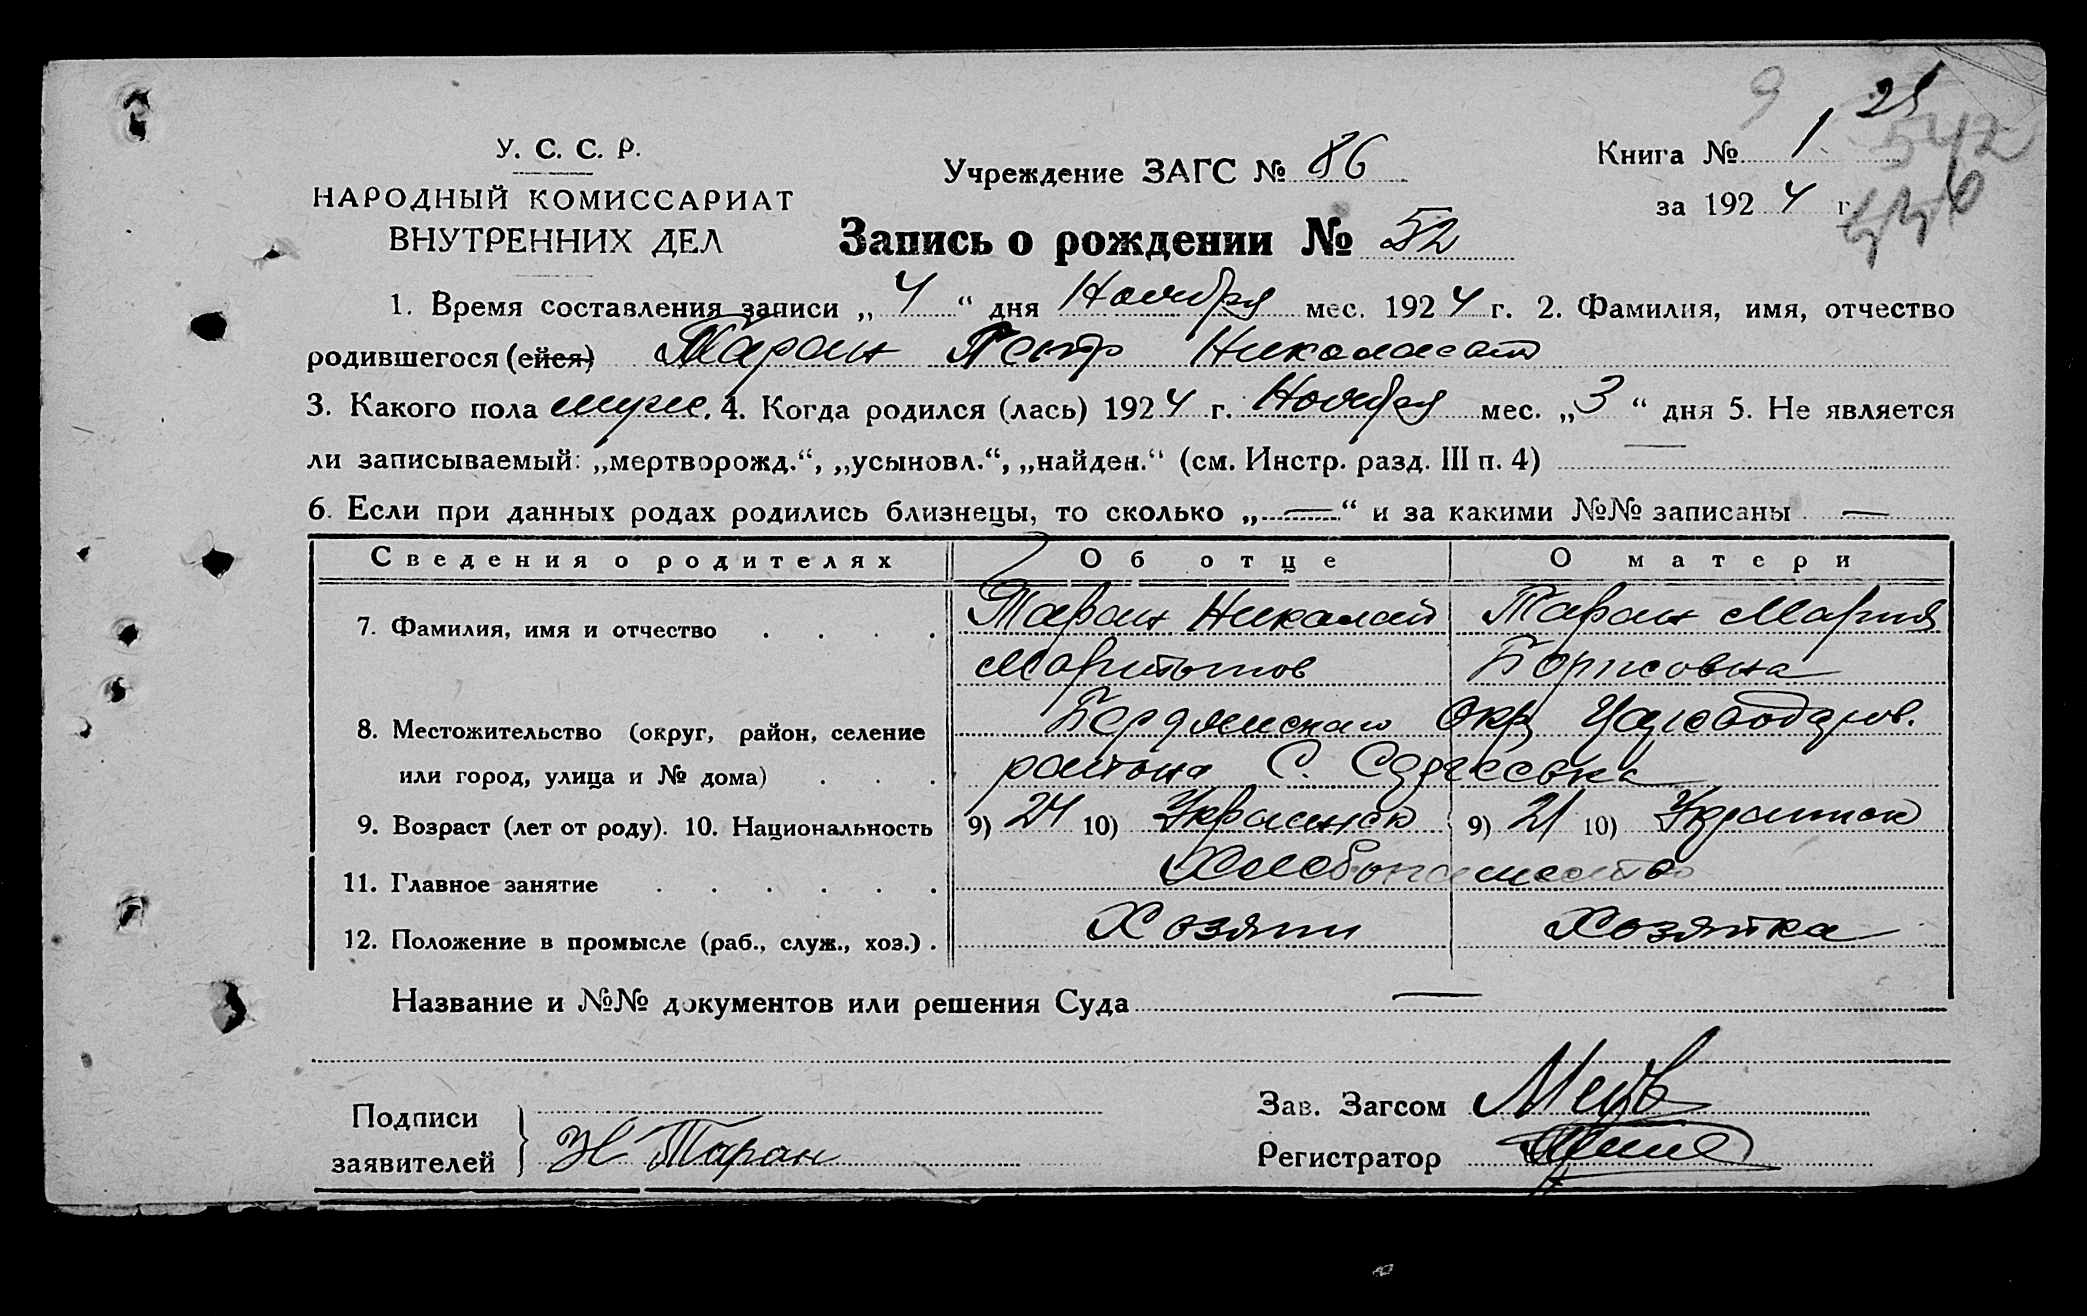 9
25
542
У. С. С. Р.
НАРОДНЫЙ КОМИССАРИАТ
ВНУТРЕННИХ ДЕЛ
Учреждение ЗАГС № 86
Книга № 1
за 1924 г.
Запись о рождении № 52
1. Время составления записи „ 4 “ дня Ноября мес. 1924 г. 2. Фамилия, имя, отчество
родившегося (ейся) Таран Петр Николаевич
3. Какого пола муже. 4. Когда родился (лась) 1924 г. Ноября мес. „ 3 “ дня 5. Не является
ли записываемый: „мертворожд.“, „усыновл.“, „найден.“ (см. Инстр. разд. III п. 4) —
6. Если при данных родах родились близнецы, то сколько „ — “ и за какими №№ записаны —
Сведения о родителях Об отце О матери
7. Фамилия, имя и отчество Таран Николай Таран Мария
Борисовна
8. Местожительство (округ, район, селение Бердянского Окр
или город, улица и № дома) района С.
9. Возраст (лет от роду). 10. Национальность 9) 24 10) Украинец 9) 21 10)
11. Главное занятие
12. Положение в промысле (раб., служ., хоз.) Хозяин Хозяйка
Название и №№ документов или решения Суда —
Подписи
заявителей Н Таран
Зав. Загсом
Регистратор